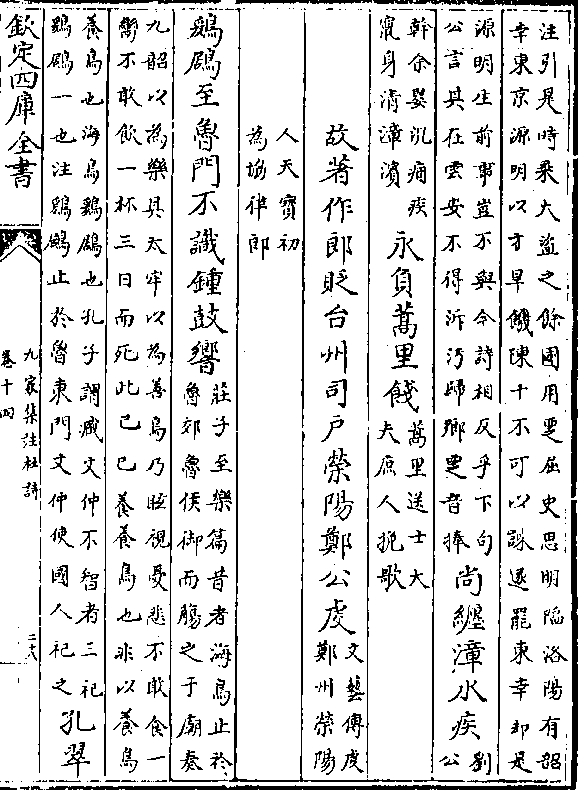 注引是時乘大盜之餘國用匱屈史思明陷洛陽有詔
幸東京源明以方旱饑陳十不可以諫遂罷東幸却是
源明生前事豈不與今詩相反乎下句
公言其在雲安不得泝沔歸鄉里音捧
尚纏漳水疾
公劉
幹余嬰沉痼疾
竄身清漳濱
永負蒿里餞
蒿里送士大
夫庶人挽歌
故著作郎貶台州司戶滎陽鄭公虔
文藝傳虔
鄭州滎陽
人天寶初
為協律郎
鶢鶋至魯門不識鍾鼓響
莊子至樂篇昔者海鳥止於
魯郊魯侯御而觴之于廟奏
九韶以為樂具太牢以為善鳥乃眩視憂悲不敢食一
臠不敢飲一杯三日而死此已已養養鳥也非以養鳥
養鳥也海鳥鶢鶋也孔子謂臧文仲不智者三祀
鶢鶋一也注鶢鶋止於魯東門文仲使國人祀之
孔翠
欽定四庫全書
九家集註杜詩
卷十四
二六